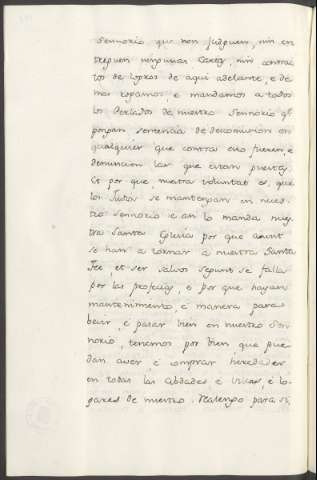 Sennorio que non judguen, nin en
treguen ningunas cartas, nin contrac
tos de logros de aqui adelante, e de
mas rogamos e mandamos a todos
los Perlados de nuestro Sennorio q̃
pongan sentencia de descomunion en
qualquier que contra esto fueren, e
denuncien las que estan puestas.
Et por que nuestra voluntat es, que
los Judios se mantengan en nues
tro sennorio e asi lo manda nues
tra Santa Eglesia por que aun
se han a tornar a nuestra Santa
Fee et ser salvos segunt se falla
por las profecias, e por que hayan
mantenimiento, e manera para
bevir, e pasar bien en nuestro Sen
norio, tenemos por bien que pue
dan aver, e comprar heredades
en todas las cibdades e villas, e lo
gares de nuestro Realengo para si,